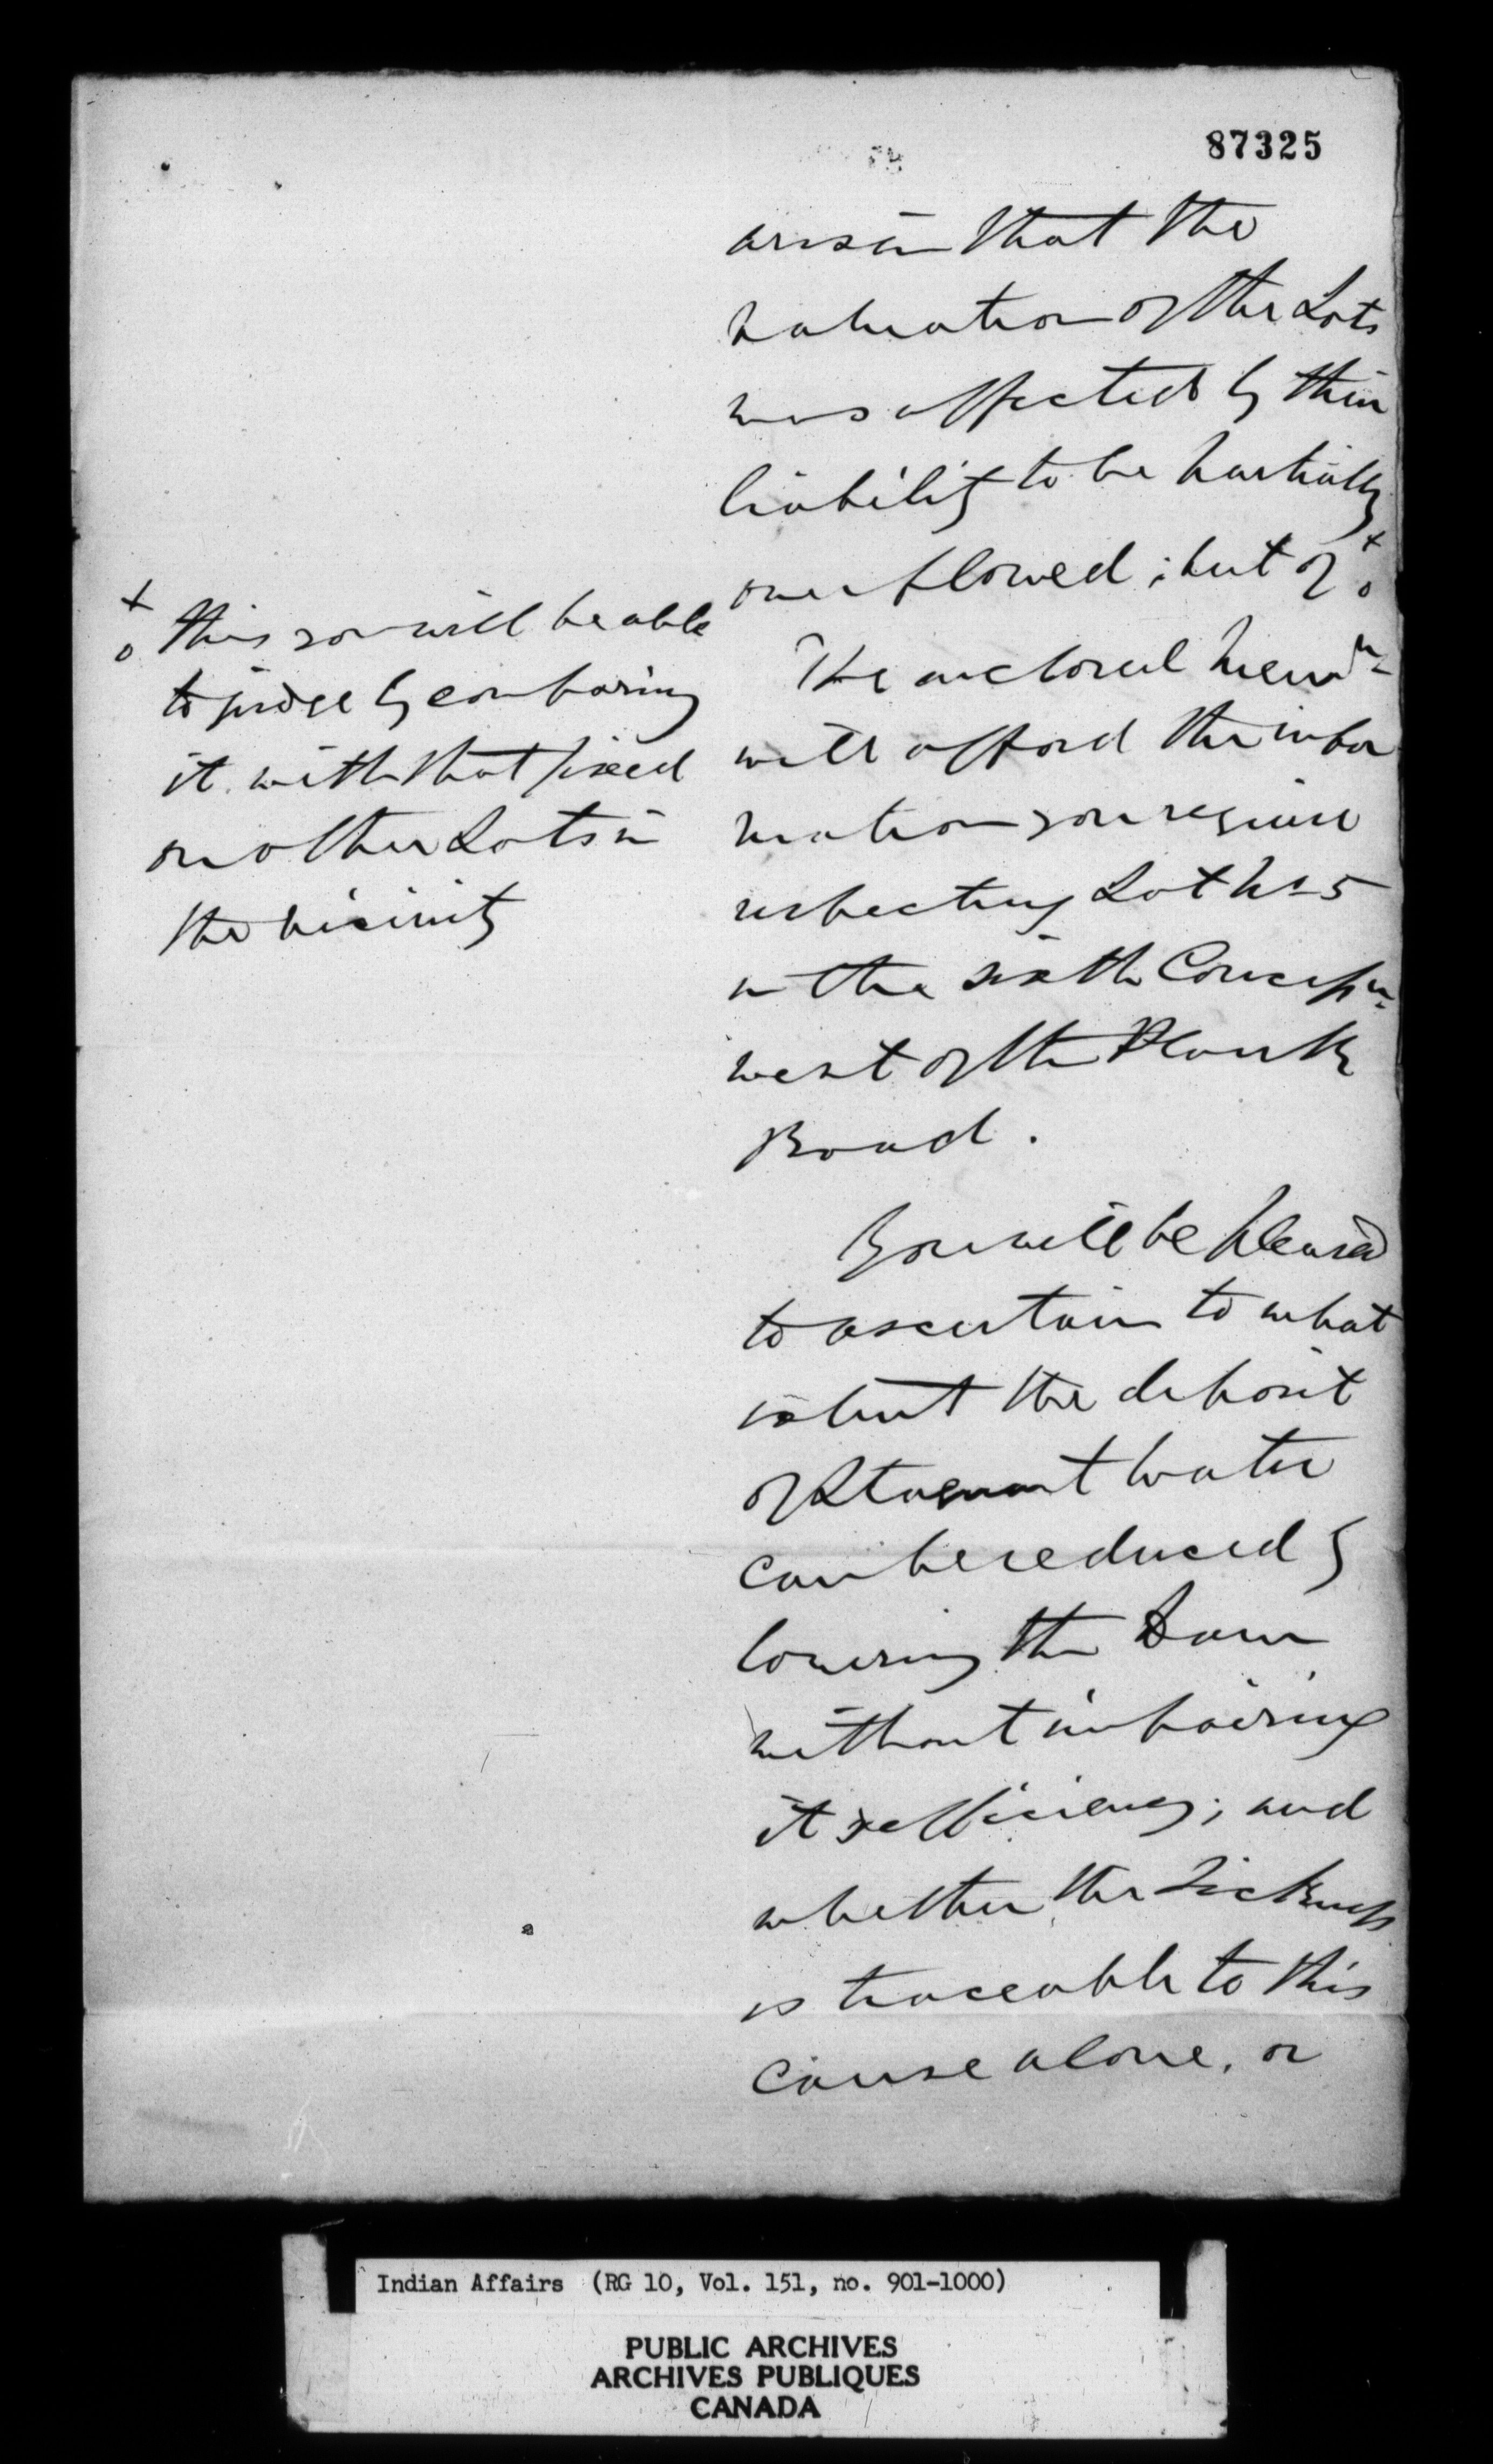 87325
arisen that the
valuation of the Lots
was affected by their
liability to be partially
overflowed; but of x o
x o this you will be able
to judge by comparing
it with that fixed
on other Lots in
the vicinity
The enclosed Memdm
will afford the infor
mation you require
respecting Lot No 5
in the sixth Concessn
west of the Plank
Road.
You will be pleased
to ascertain to what
extent the deposit
of Stagnant water
can be reduced by
lowering the Dam
without impairing
its efficiency; and
whether the Sickness
is traceable to this
cause alone, or
Indian Affairs (RG 10, Vol. 151, no. 901-1000)
PUBLIC ARCHIVES
ARCHIVES PUBLIQUES
CANADA